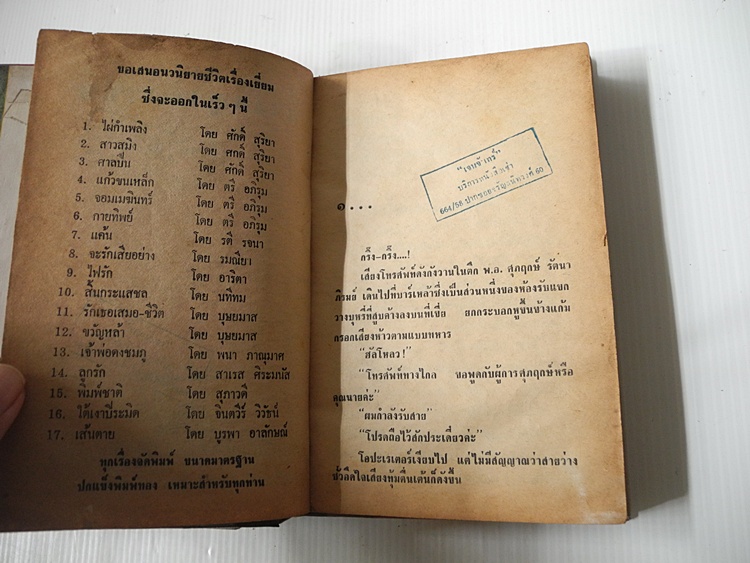 ขอเสนอนวนิยายชีวิตเรื่องเยี่ยม
ซึ่งจะออกในเร็ว ๆ นี้
1. ไผ่กำเพลิง โดย ศักดิ์ สุริยา
2. สาวสมิง โดย ศักดิ์ สุริยา
3. ศาลปืน โดย ศักดิ์ สุริยา
4. แก้วขนเหล็ก โดย ตรี อภิรุม
5. จอมเมฆินทร์ โดย ตรี อภิรุม
6. กายทิพย์ โดย ตรี อภิรุม
7. แค้น โดย รตี รจนา
8. จะรักเสียอย่าง โดย รมณียา
9. ไฟรัก โดย อาริตา
10. สิ้นกระแสชล โดย นทีทม
11. รักเธอเสมอ-ชีวิต โดย บุษยมาส
12. ขวัญหล้า โดย บุษยมาส
13. เจ้าพ่อดงชมภู โดย พนา ภาณุมาศ
14. ลูกรัก โดย สาเรส ศิระมนัส
15. พิมพ์ชาติ โดย สุภาวดี
16. ใต้เงาปิระมิด โดย จินตวีร์ วิวัธน์
17. เส้นตาย โดย บูรพา อาลักษณ์
ทุกเรื่องจัดพิมพ์ ขนาดมาตรฐาน
ปกแข็งพิมพ์ทอง เหมาะสำหรับทุกท่าน
"เจนจักร์"
บริการหนังสือเช่า
664/58 ปากซอยจรัญสนิทวงศ์ 60
๑...
กริ๊ง-กริ๊ง....!
เสียงโทรศัพท์ดังกังวานในตึก พ.อ. ศุภฤกษ์ รัตนา
ภิรมย์ เดินไปที่บาร์เหล้าซึ่งเป็นส่วนหนึ่งของห้องรับแขก
วางบุหรี่ที่สูบค้างลงบนที่เขี่ย ยกกระบอกหูขึ้นข้างแก้ม
กรอกเสียงห้าวตามแบบทหาร
"ฮัลโหลว!"
"โทรศัพท์ทางไกล ขอพูดกับผู้การศุภฤกษ์หรือ
คุณนายค่ะ"
"ผมกำลังรับสาย"
"โปรดถือไว้สักประเดี๋ยวค่ะ"
โอปะเรเตอร์เงียบไป แต่ไม่มีสัญญาณว่าสายว่าง
ชั่วอึดใจเสียงทุ้มตื่นเต้นก็ดังขึ้น